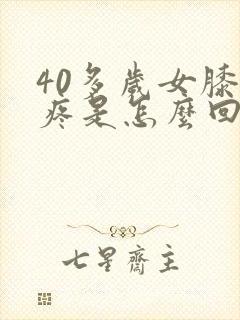 40多歲女膝
疼是怎麼回
七星齋主